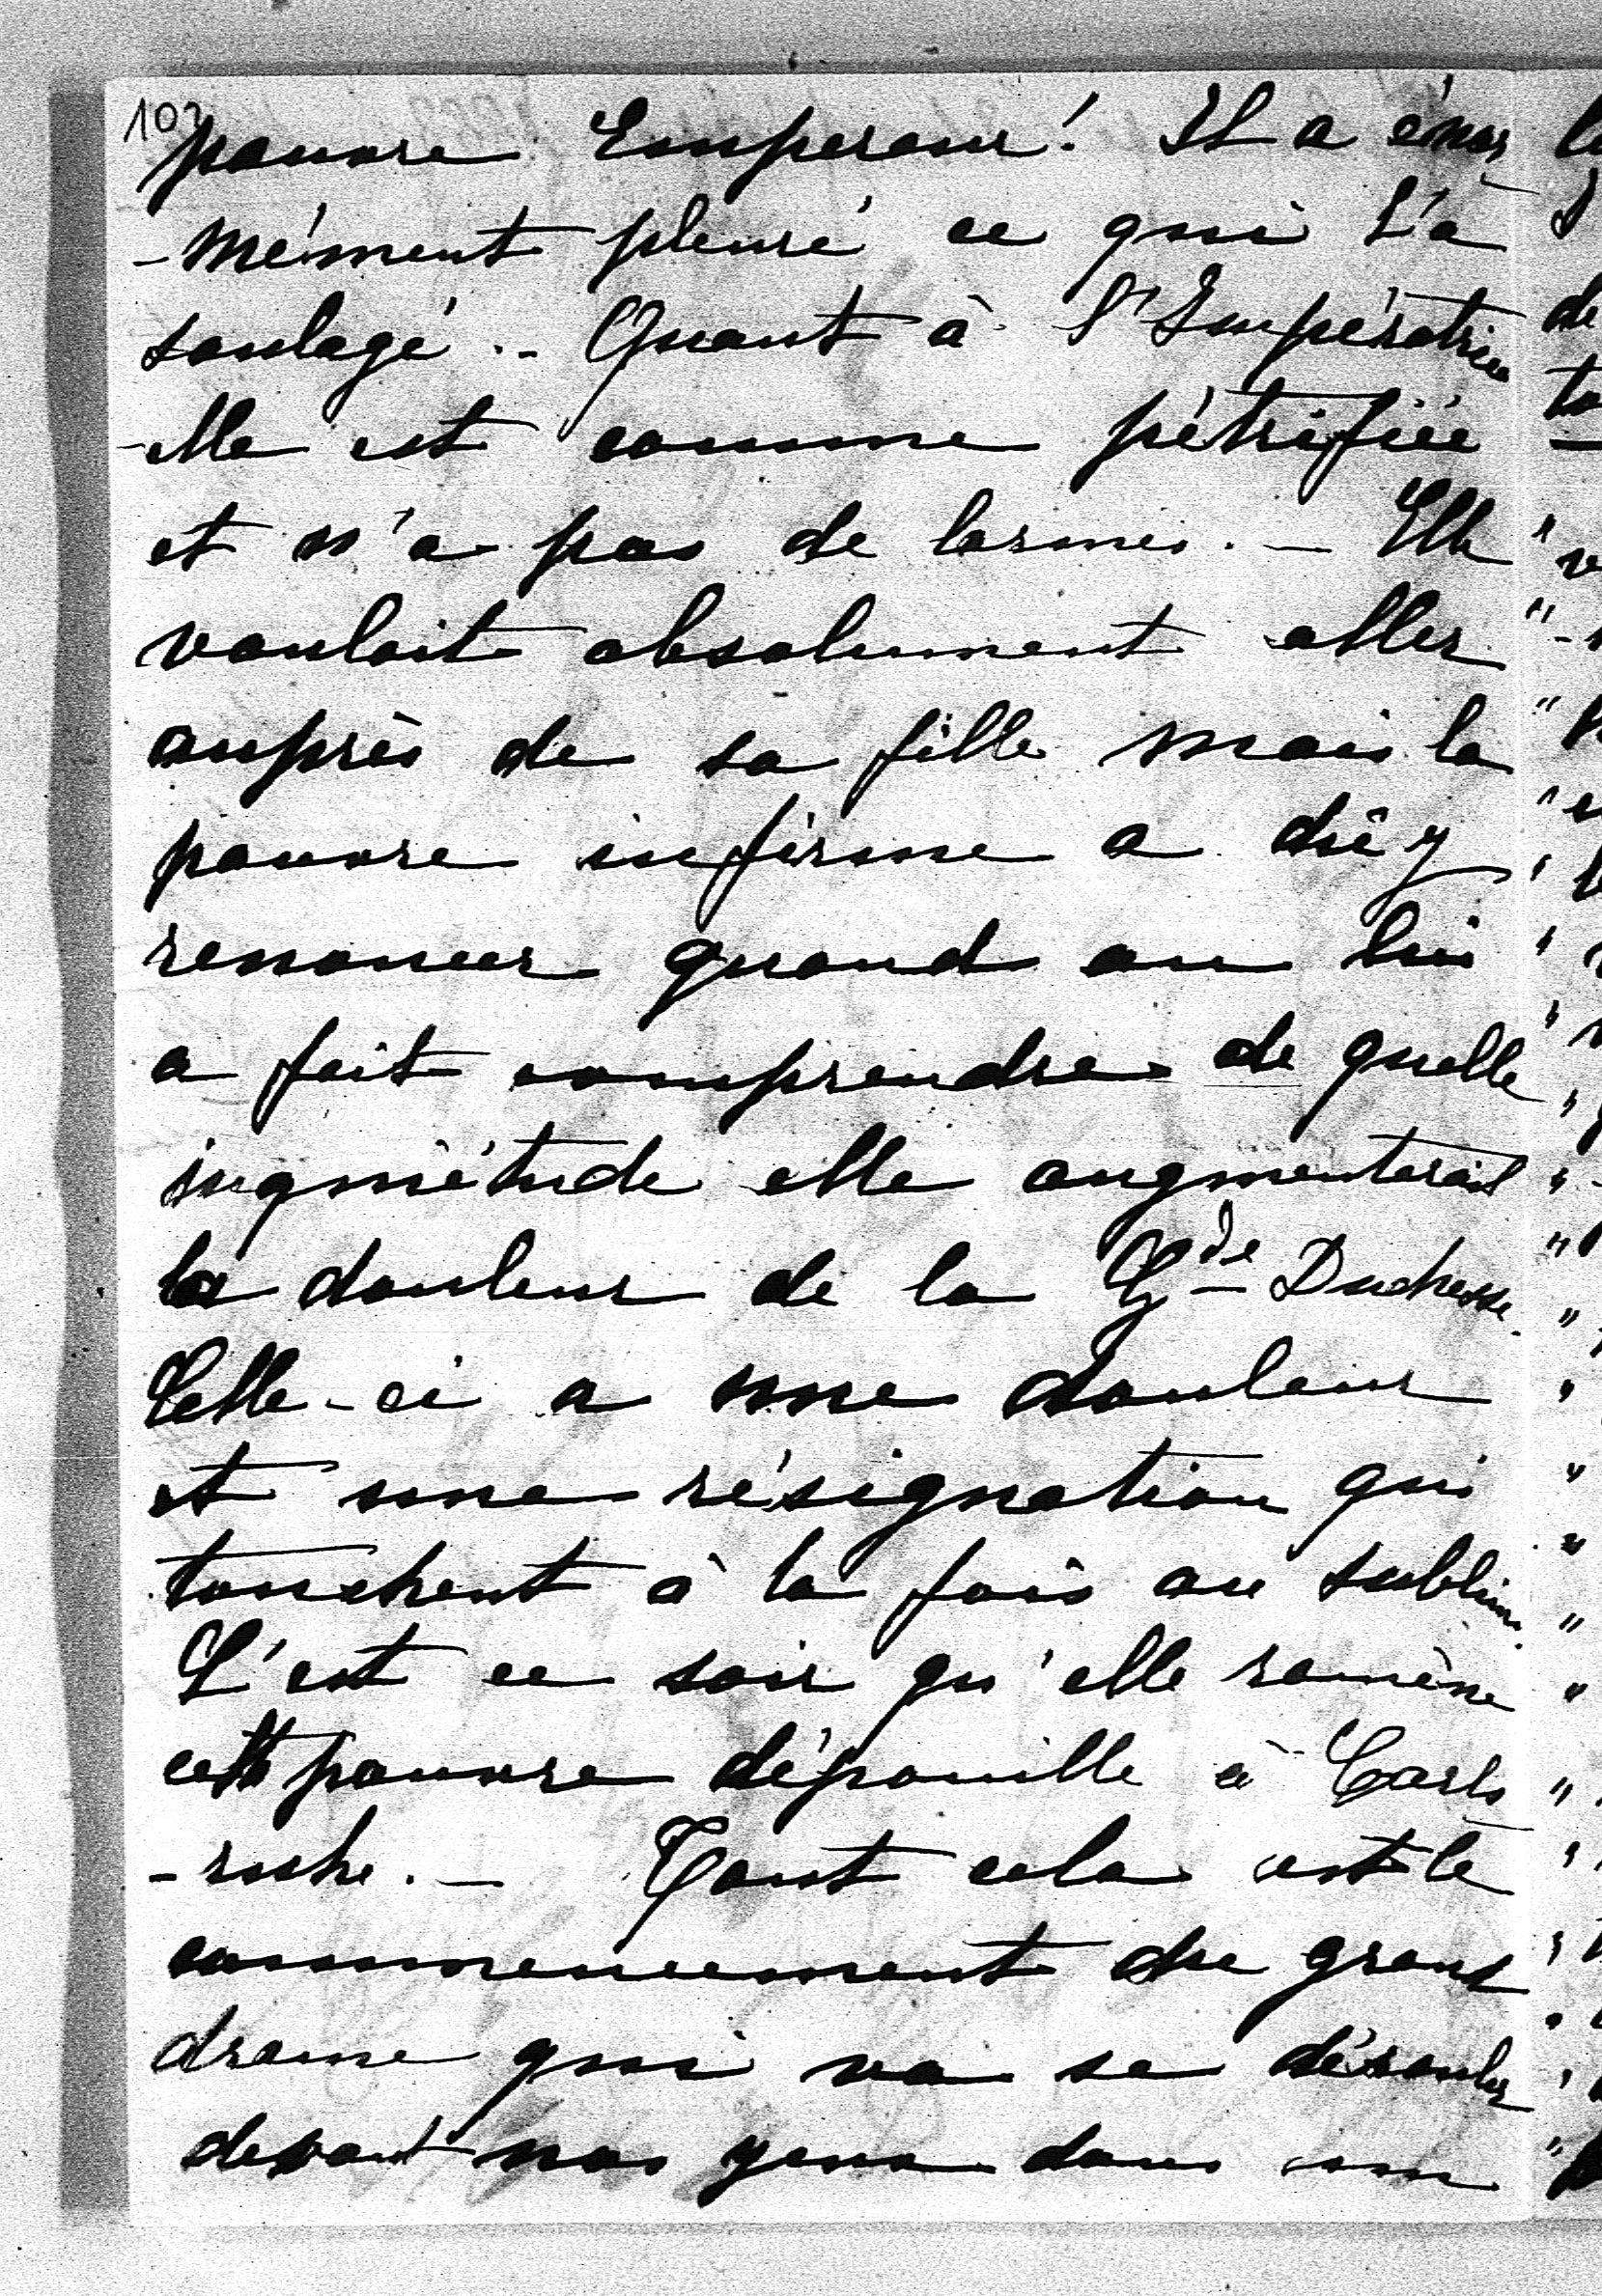 102
pauvre Empereur! Il a énor
-mément pleuré ce qui l'a
soulagé. - Quant à l'Impératrice
elle est comme pétrifiée
et n'a pas de larmes. - Elle
voulait absolument aller
auprès de sa fille mais la
pauvre infirme a dû y
renoncer quand on lui
a fait comprendre de quelle
inquiétude elle augmenterait
la douleur de la Gde Duchesse.
Celle-ci a une douleur
et une résignation qui
touchent à la fois au sublime.
C'est ce soir qu'elle ramène
cette pauvre dépouille à Carls
-ruhe. - Tout cela est le
commencement du grand
drame qui va se dérouler
devant nos yeux dans un